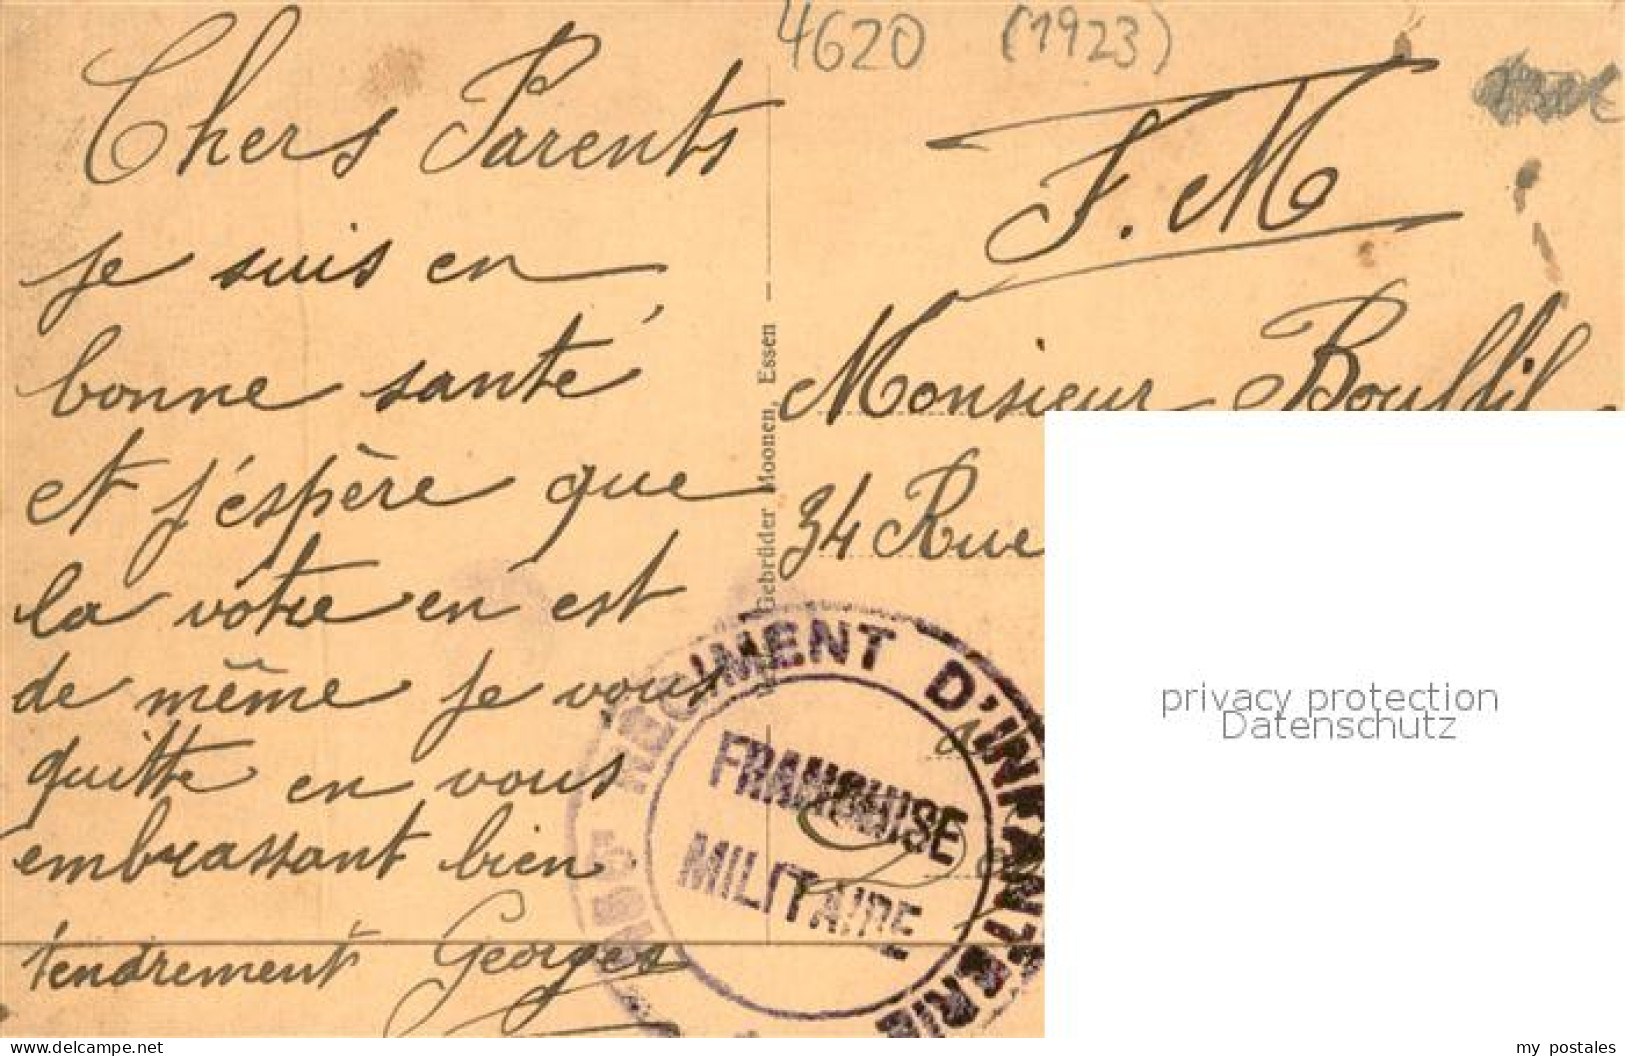 4620 (1923)
Chers Parents
je suis en
bonne santé
et j'éspère que
la vôtre en est
de même je vous
quitte en vous
embrassant bien
tendrement Georges
Gebrüder Moonen, Essen
F.M
Monsieur
34 Rue
REGIMENT D'INFANTERIE
FRANCHISE
MILITAIRE
privacy protection
Datenschutz
www.delcampe.net
my_postales